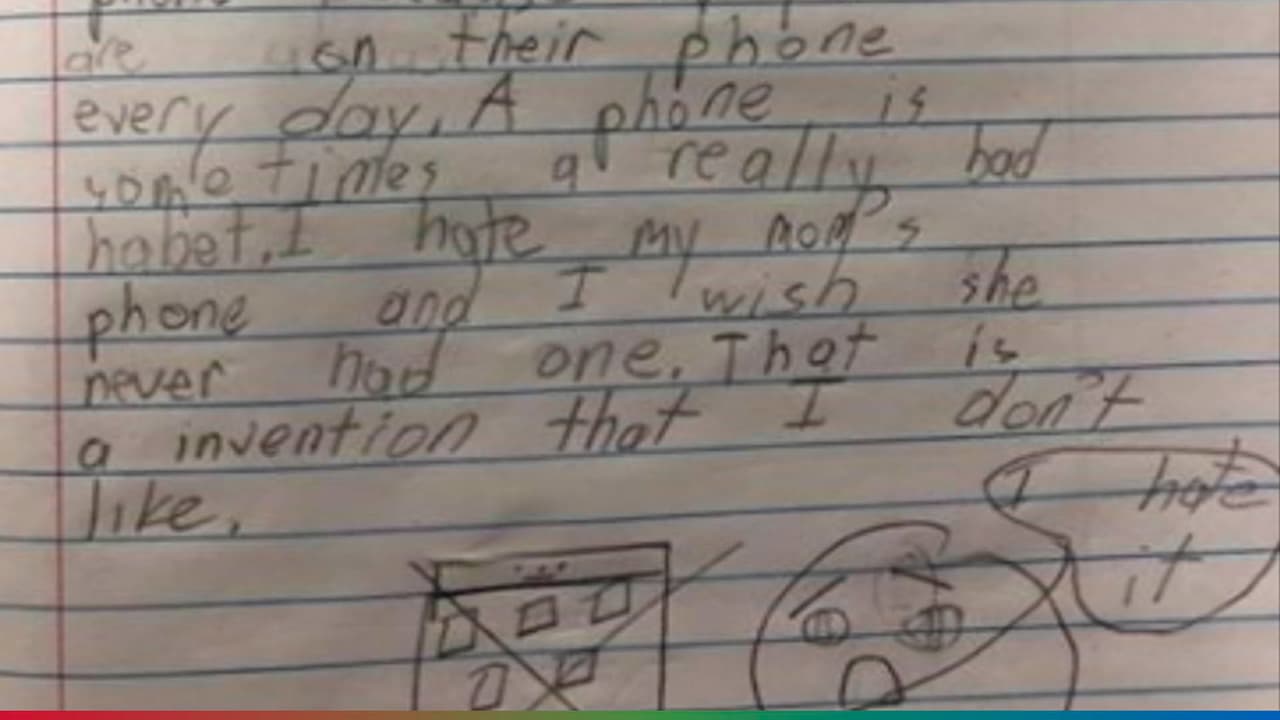 are on their phone
every day. A phone is
sometimes a really bad
habet. I hate my mom's
phone and I wish she
never had one. That is
a invention that I don't
like.
I hate
it